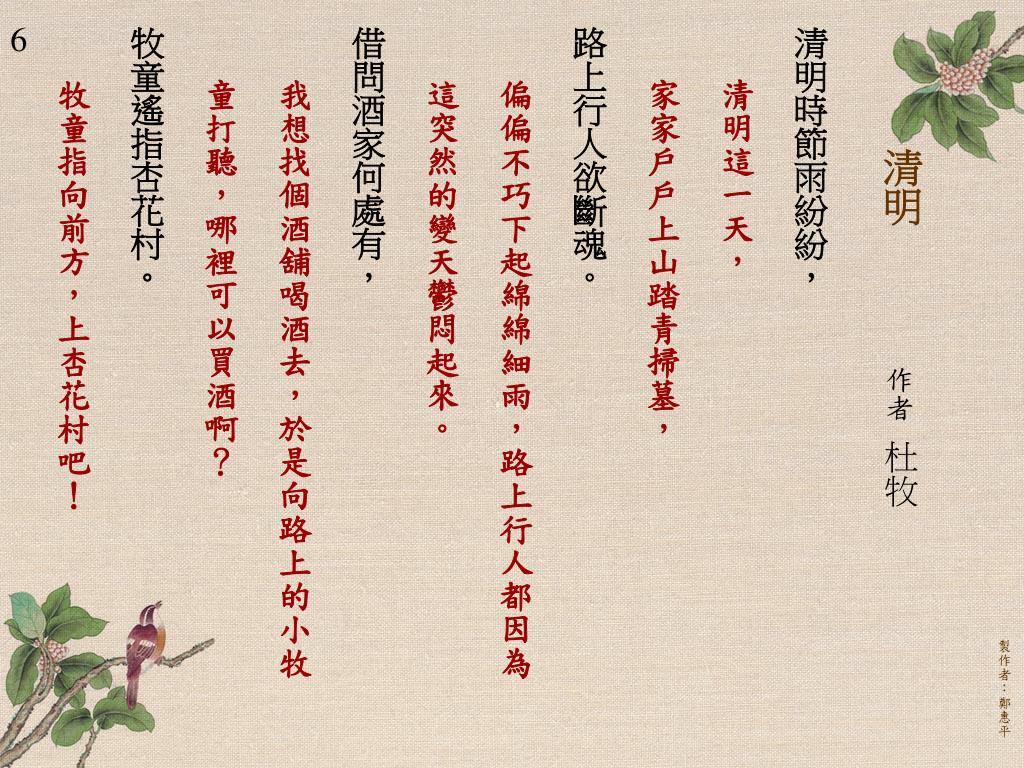 清明
作者 杜牧
清明時節雨紛紛，
清明這一天，
家家戶戶上山踏青掃墓，
路上行人欲斷魂。
偏偏不巧下起綿綿細雨，路上行人都因為
這突然的變天鬱悶起來。
借問酒家何處有，
我想找個酒舖喝酒去，於是向路上的小牧
童打聽，哪裡可以買酒啊？
牧童遙指杏花村。
牧童指向前方，上杏花村吧！
6
製作者：鄭惠平